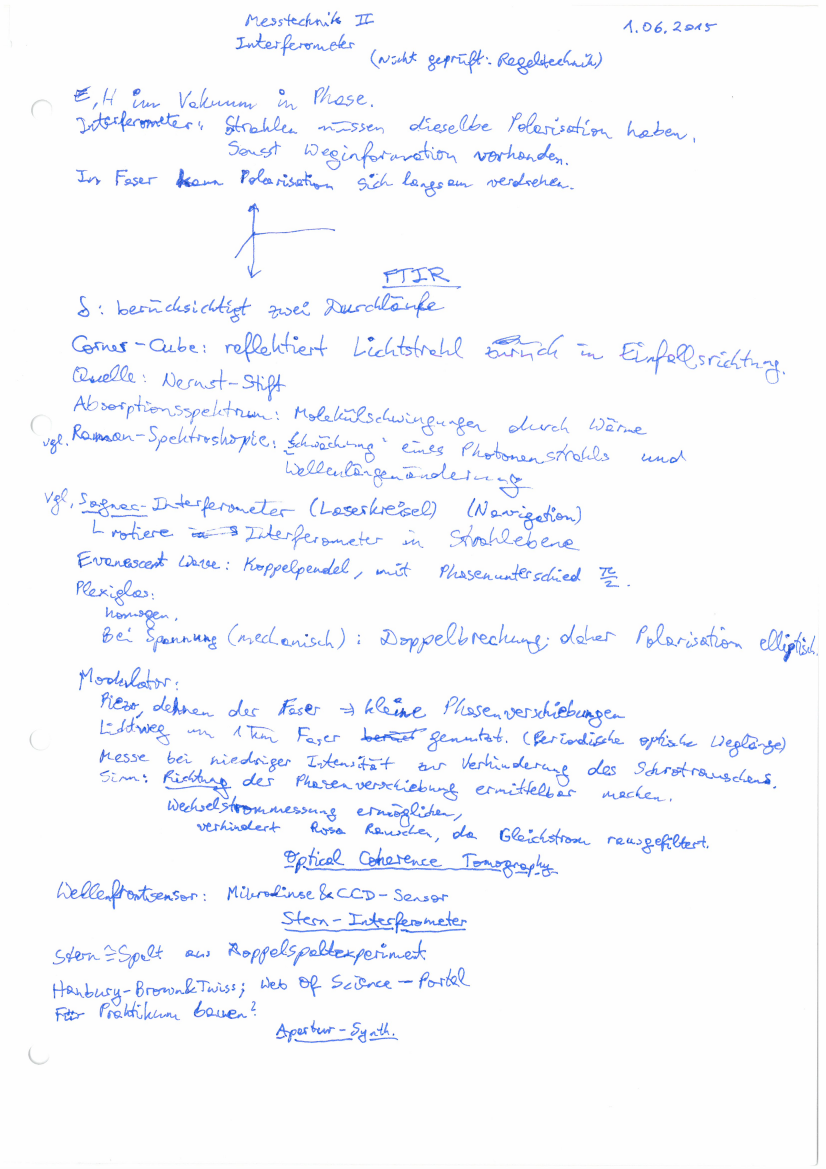 Messtechnik II
1.06.2015
Interferometer
(Nicht geprüft: Regeltechnik)
E, H im Vakuum in Phase.
Interferometer: Strahlen müssen dieselbe Polarisation haben,
Sonst Weginformation vorhanden.
In Faser kann Polarisation sich langsam verdrehen.
FTIR
δ: berücksichtigt zwei Durchläufe
Corner-Cube: reflektiert Lichtstrahl zurück in Einfallsrichtung.
Quelle: Nernst-Stift
Absorptionsspektrum: Molekülschwingungen durch Wärme
vgl. Raman-Spektroskopie: "Schwächung" eines Photonenstrahls und
Wellenlängenänderung
Vgl. Sagnac-Interferometer (Laserkreisel) (Navigation)
rotiere Interferometer in Strahlebene
Evanescent Wave: Koppelpendel, mit Phasenunterschied π/2.
Plexiglas:
homogen,
Bei Spannung (mechanisch): Doppelbrechung; daher Polarisation elliptisch.
Modulator:
Piezo, dehnen der Faser ⇒ kleine Phasenverschiebungen
Lichtweg um 1 km Faser genutzt. (Periodische optische Weglänge)
Messe bei niedriger Intensität zur Verhinderung des Schrotrauschens.
Sinn: Richtung der Phasenverschiebung ermittelbar machen.
Wechselstrommessung ermöglichen,
verhindert Rosa Rauschen, da Gleichstrom rausgefiltert.
Optical Coherence Tomography
Wellenfrontsensor: Mikrolinse & CCD-Sensor
Stern-Interferometer
Stern ≅ Spalt aus Doppelspaltexperiment
Hanbury-Brown & Twiss; Web of Science - Portal
Praktikum bauen?
Apertur-Synth.